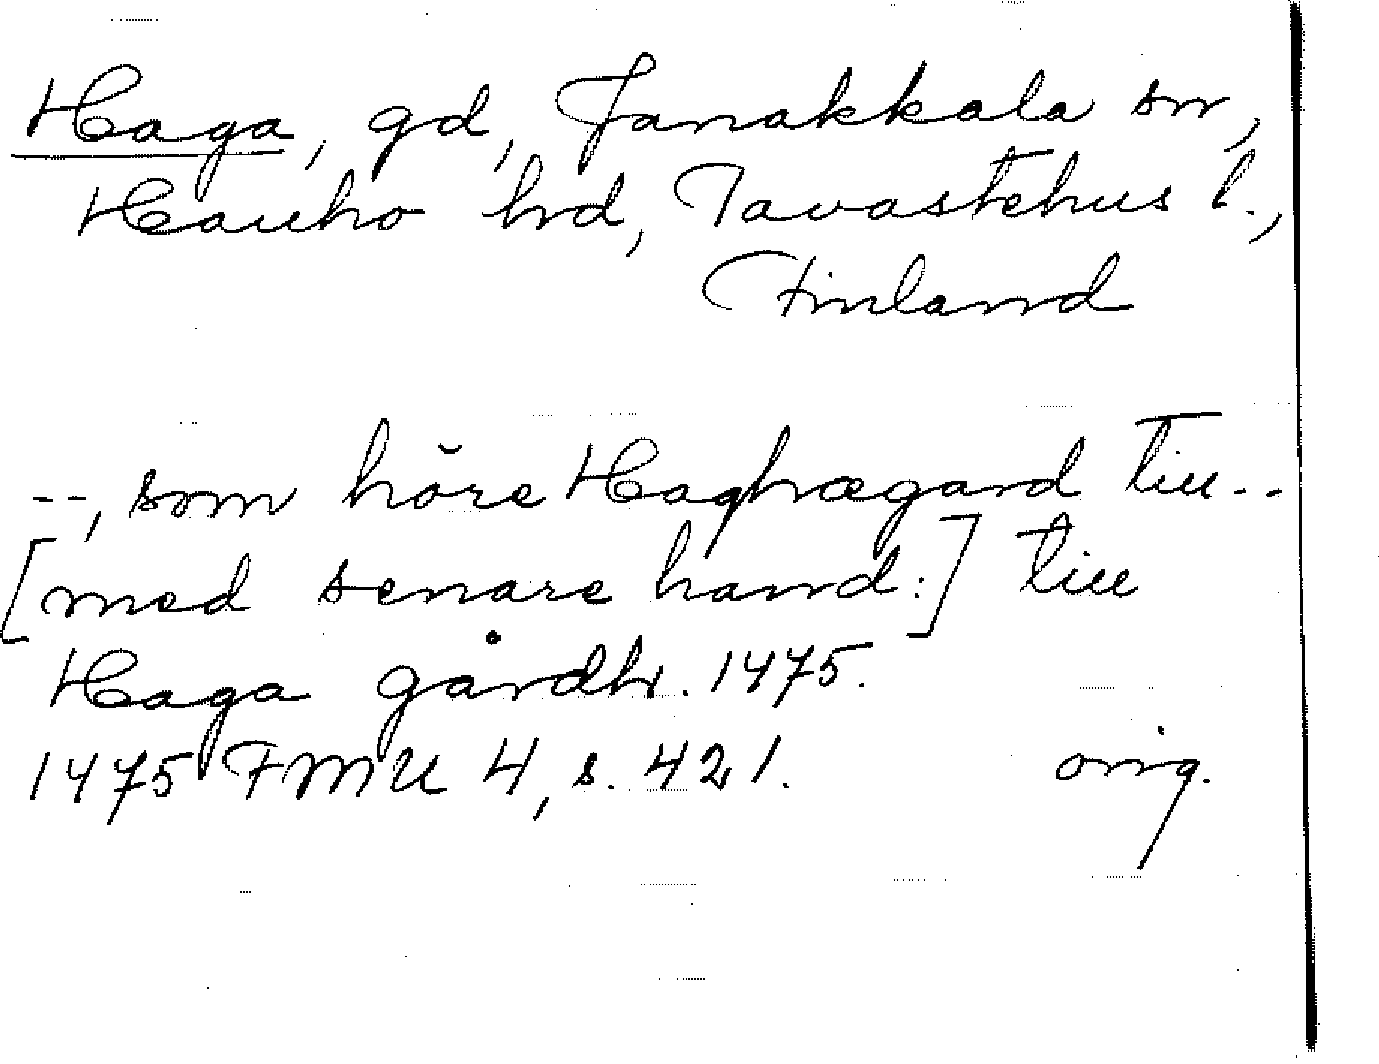 Haga, gd, Janakkala sn,
Hauho hrd, Tavastehus l.,
Finland
--, som höre Haghægard till--
[med senare hand:] till
Haga gårdh. 1475.
1475 FMU 4, s. 421. orig.